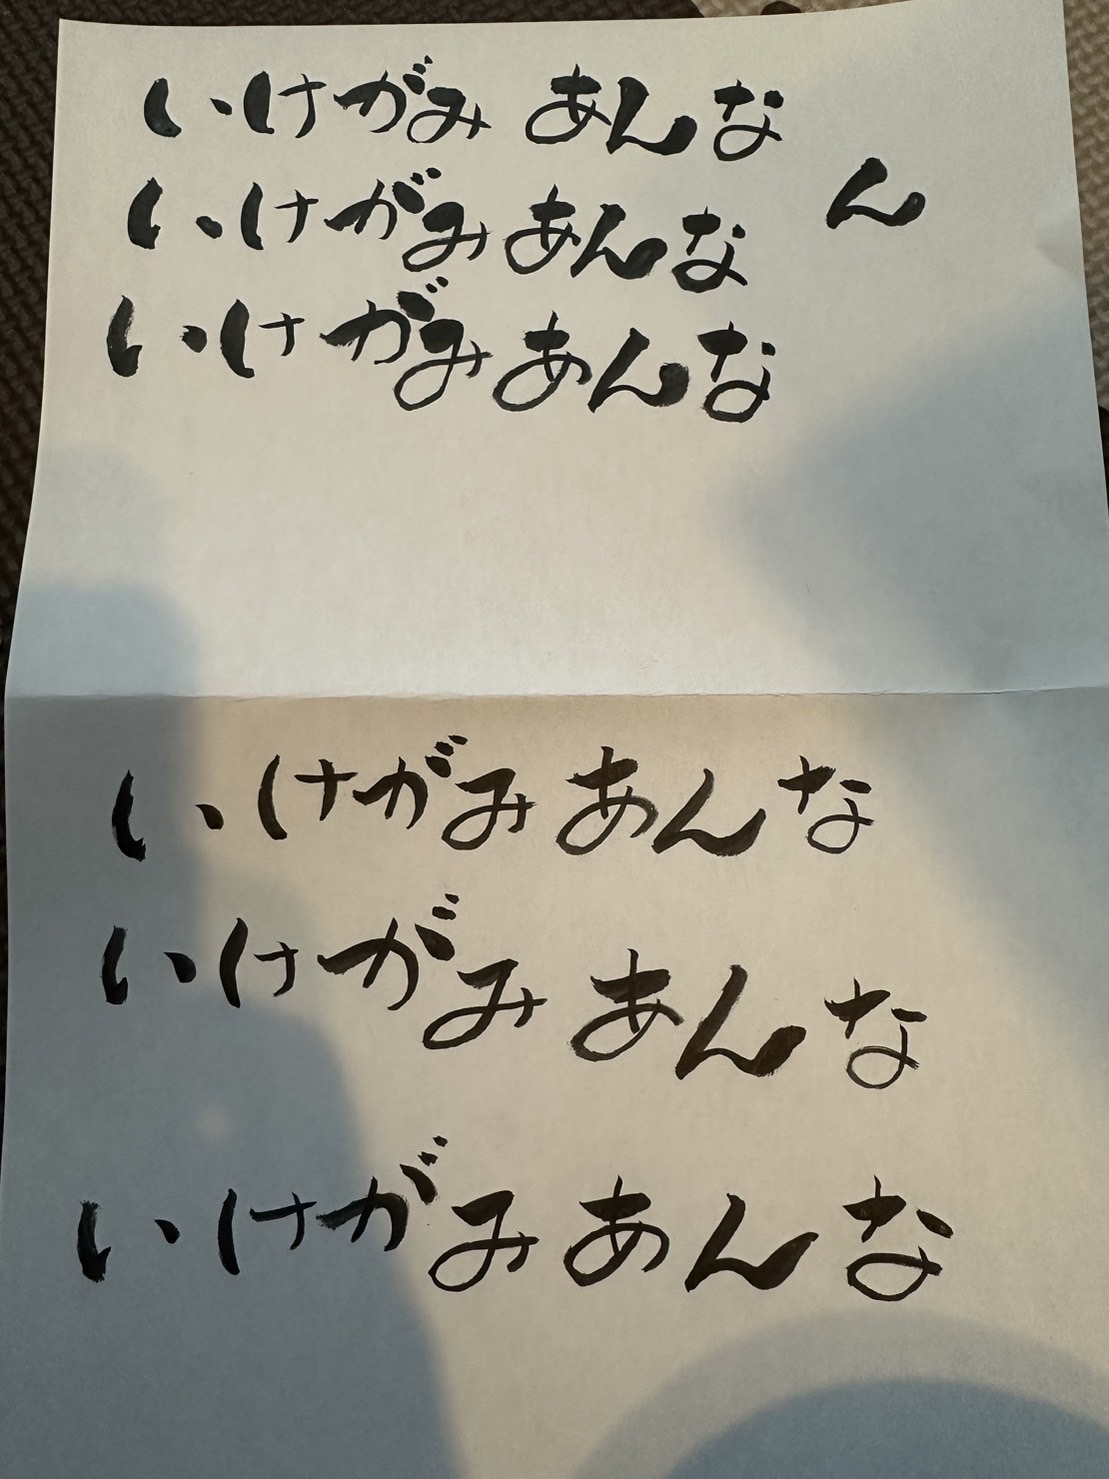 いけがみ あんな
ん
いけがみ あんな
いけがみ あんな
いけがみ あんな
いけがみ あんな
いけがみ あんな